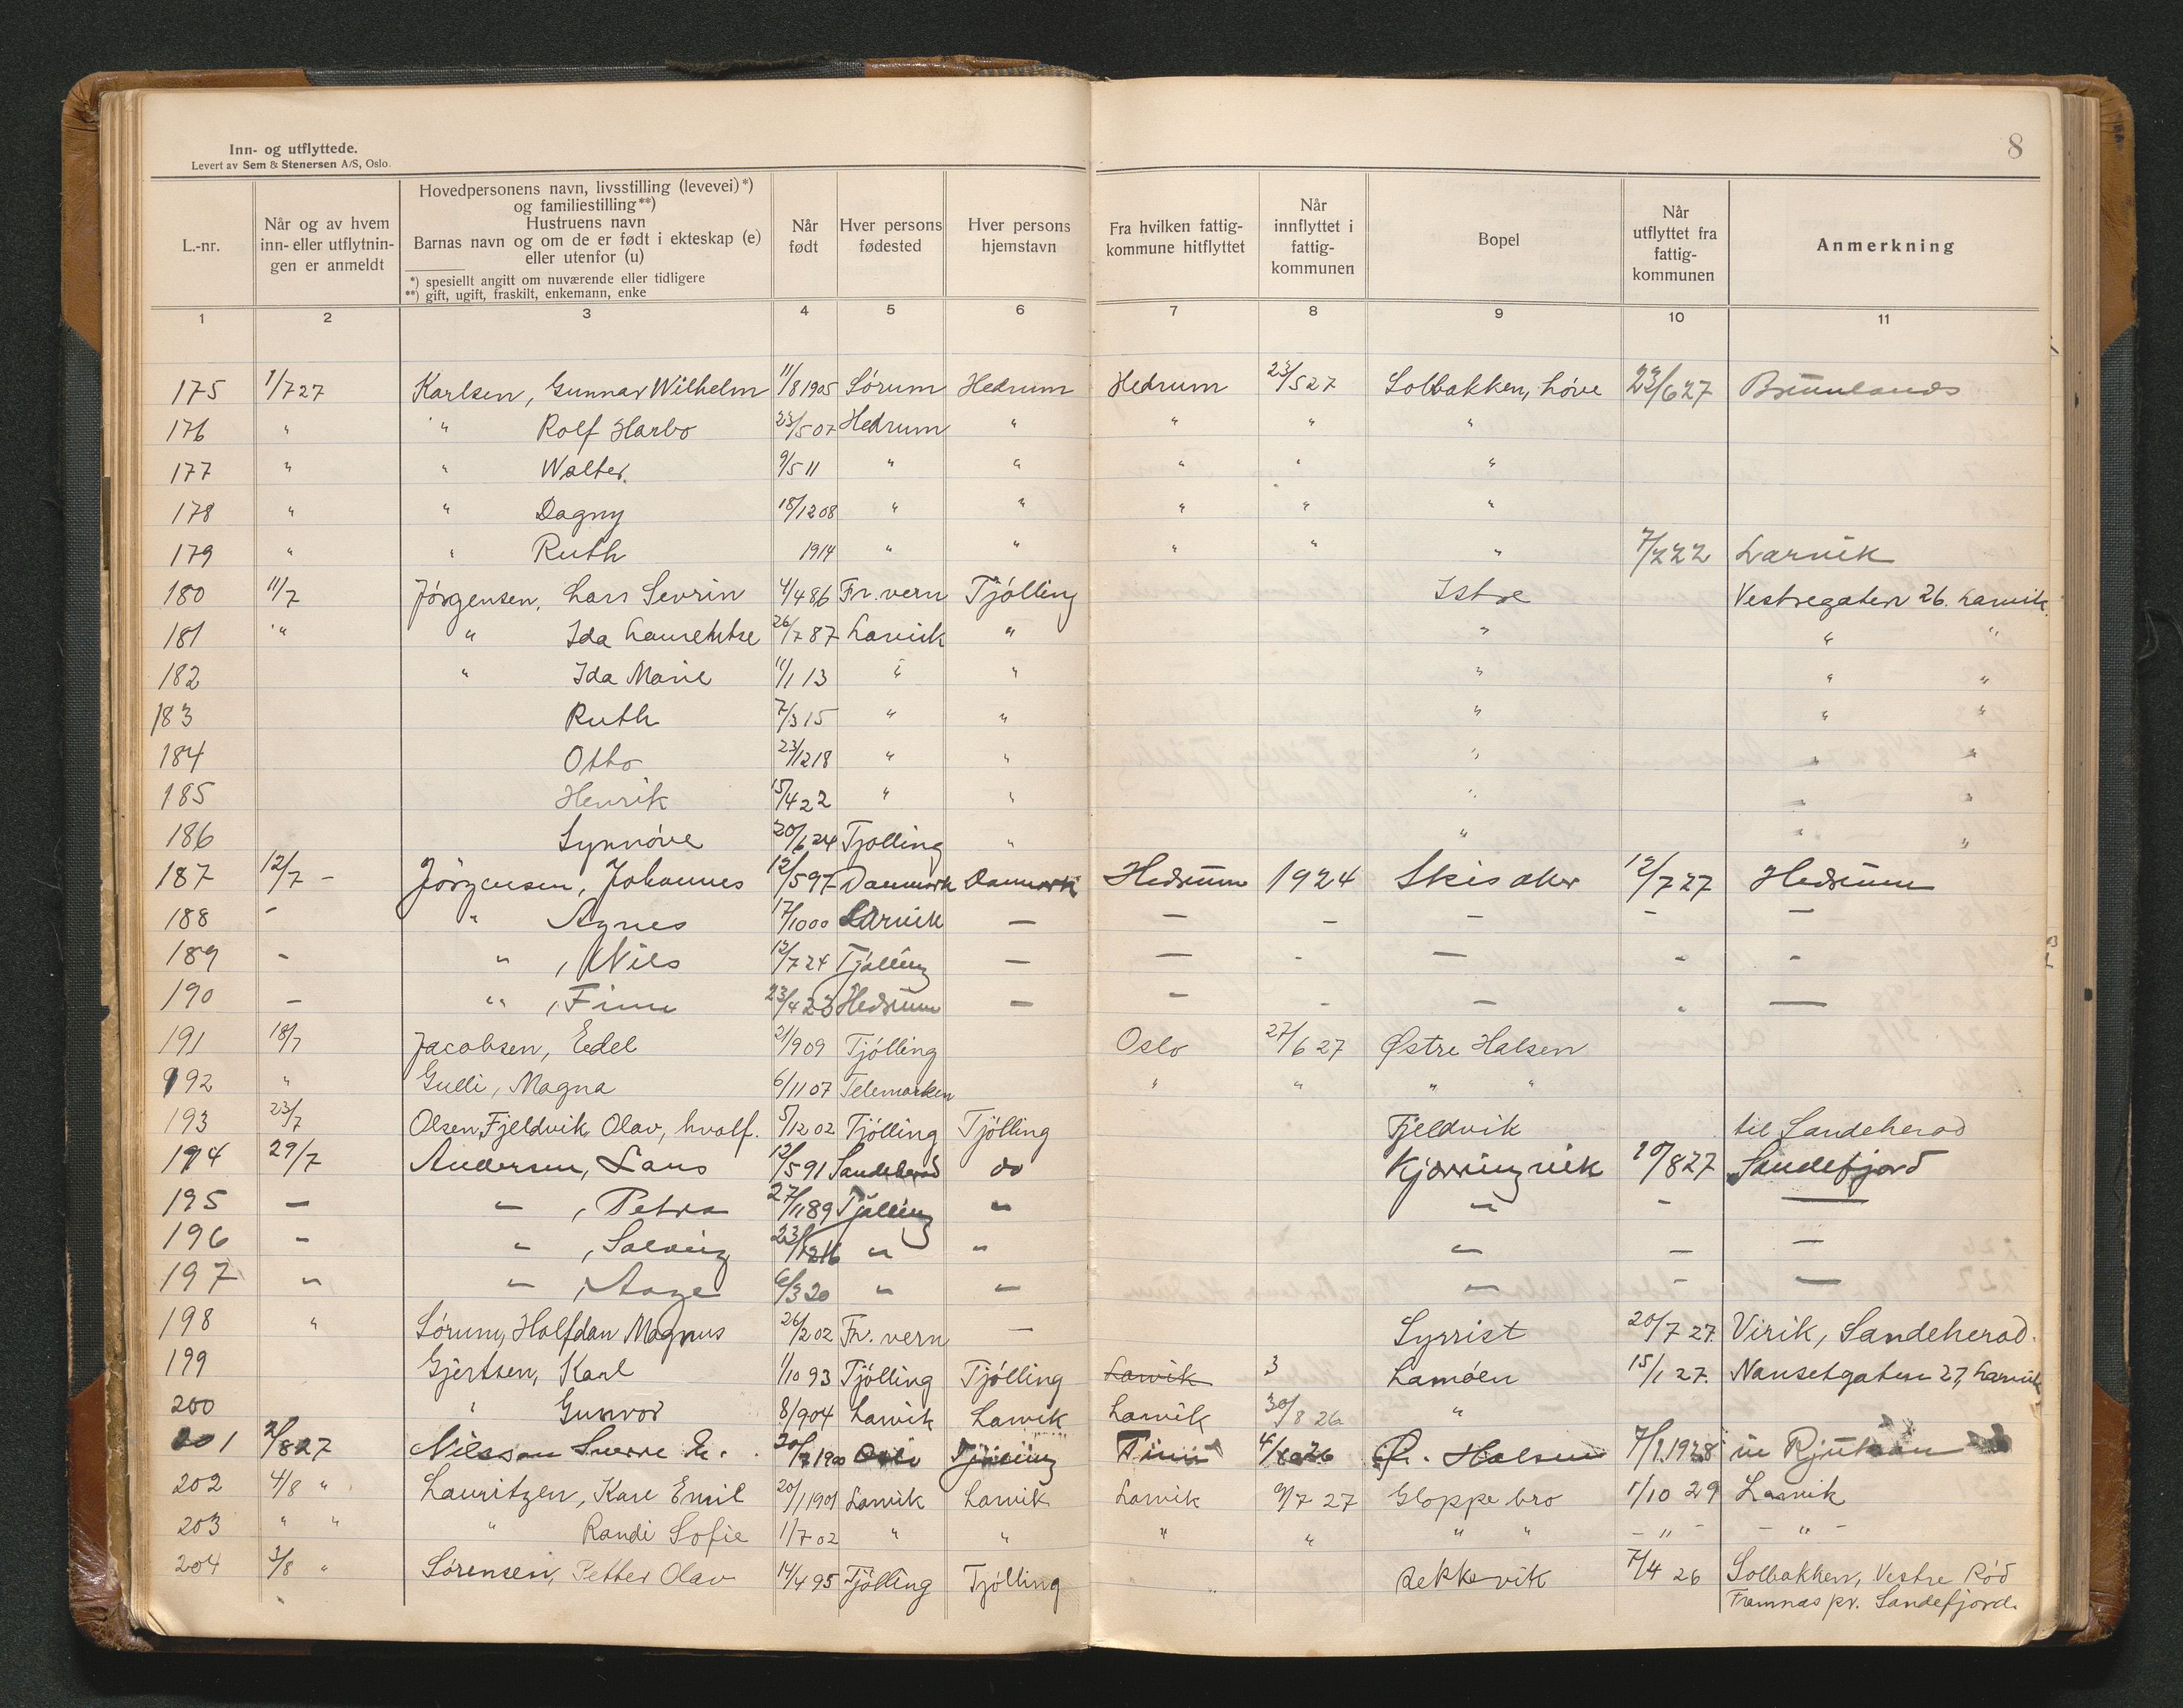 8
Inn- og utflyttede.
Levert av Sem & Stenersen A/S, Oslo.
L.-nr.
Når og av hvem inn- eller utflytnin-gen er anmeldt
Hovedpersonens navn, livsstilling (levevei)*)
og familiestilling**)
Hustruens navn
Barnas navn og om de er født i ekteskap (e)
eller utenfor (u)
*) spesiellt angitt om nuværende eller tidligere
**) gift, ugift, fraskilt, enkemann, enke
Når født
Hver persons fødested
Hver persons hjemstavn
Fra hvilken fattig-kommune hitflyttet
Når innflyttet i fattig-kommunen
Bopel
Når utflyttet fra fattig-kommunen
Anmerkning
1 2 3 4 5 6 7 8 9 10 11
175 1/7 27 Karlsen, Gunnar Wilhelm 11/8 1905 Sørum Hedrum Hedrum 23/5 27 Solbakken, Løve 23/6 27 Brunlanes
176 " " Rolf Harbo 23/5 07 Hedrum " " " "
177 " " Walter. 9/5 11 " " " " "
178 " " Dagny 18/12 08 " " " " "
179 " " Ruth 1914 " " " " " 7/7 22 Larvik
180 11/7 Jörgensen, Lars Sevrin 4/4 86 Fr.vern Tjölling Istre Vestregaten 26. Larvik.
181 " " Ida Laurentse 26/7 87 Larvik " " " "
182 " Ida Marie 11/1 13 " " " " "
183 Ruth 7/3 15 " " " " "
184 Otto 23/12 18 " " " " "
185 Henrik 15/4 22 " " " " "
186 Synnöve 20/6 24 Tjölling " " " "
187 12/7 - Jörgensen, Johannes 12/5 97 Danmark Danmark Hedrum 1924 Skisaker 12/7 27 Hedrum
188 - " Agnes 17/10 00 Larvik - - - - - -
189 - " , Nils 12/7 24 Tjølling - - - - - -
190 - " , Finn 23/4 23 Hedrum - - - - - -
191 18/7 Jacobsen, Edel 21/9 09 Tjölling Oslo 27/6 27 Østre Halsen
192 " Gulli, Magna 6/11 07 Telemarken " " " "
193 23/7 Olsen Fjeldvik, Olav, hvalf. 5/12 02 Tjölling Tjölling Fjeldvik til Sandeherad
194 29/7 Andersen, Lars 12/5 91 Sandeherad do Kjærringvik 10/8 27 Sandefjord
195 - - , Petra 27/11 89 Tjølling - - - -
196 - - , Solveig 23/12 16 - - - - -
197 - - , Aage 6/3 20 - - - - -
198 " Sörum, Halfdan Magnus 26/2 02 Fr. vern - Syrrist 20/7 27. Virik, Sandeherad.
199 Gjertsen, Karl 1/10 93 Tjölling Tjölling Larvik 3 Lamöen 15/1 27. Nansetgaten 27, Larvik
200 " Gunvor 8/9 04 Larvik Larvik Larvik 30/8 26 "
201 2/8 27 Nilsson Sverre E. 20/7 1900 Oslo Tjølling Tinn 4/8 26 Ø. Halsen 7/1 1928 til Rjukan
202 4/8 " Lauritzen, Kare Emil 20/1 1901 Larvik Larvik Larvik 9/7 27 Gloppe bro 1/10 29 Larvik
203 " " " Randi Sofie 1/7 02 " " " " " " - " - - " -
204 3/8 " Sörensen, Petter Olav 14/4 95 Tjölling Tjölling Rekkevik 7/4 26 Solbakken, Vestre Röd
Framnæs pr. Sandefjord.